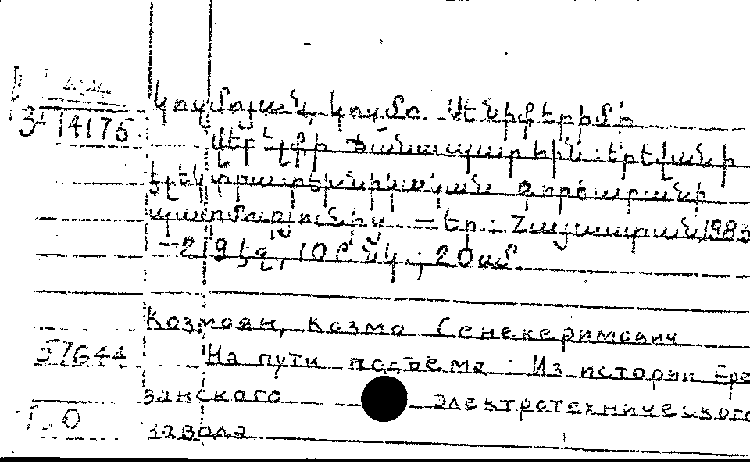 Կոզմոյան, Կոզմո Սենիքերիմի
3 14175
Վերելքի ճանապարհին : Երևանի
էլեկտրատեխնիկական գործարանի
պատմությունից. — Եր.: Հայաստան, 1985
— 219 էջ, 10 ; 20 սմ.
Козмоян, Козмо Сенекеримович
57644
На пути подъема : Из истории Ере
ванского электротехнического
завода